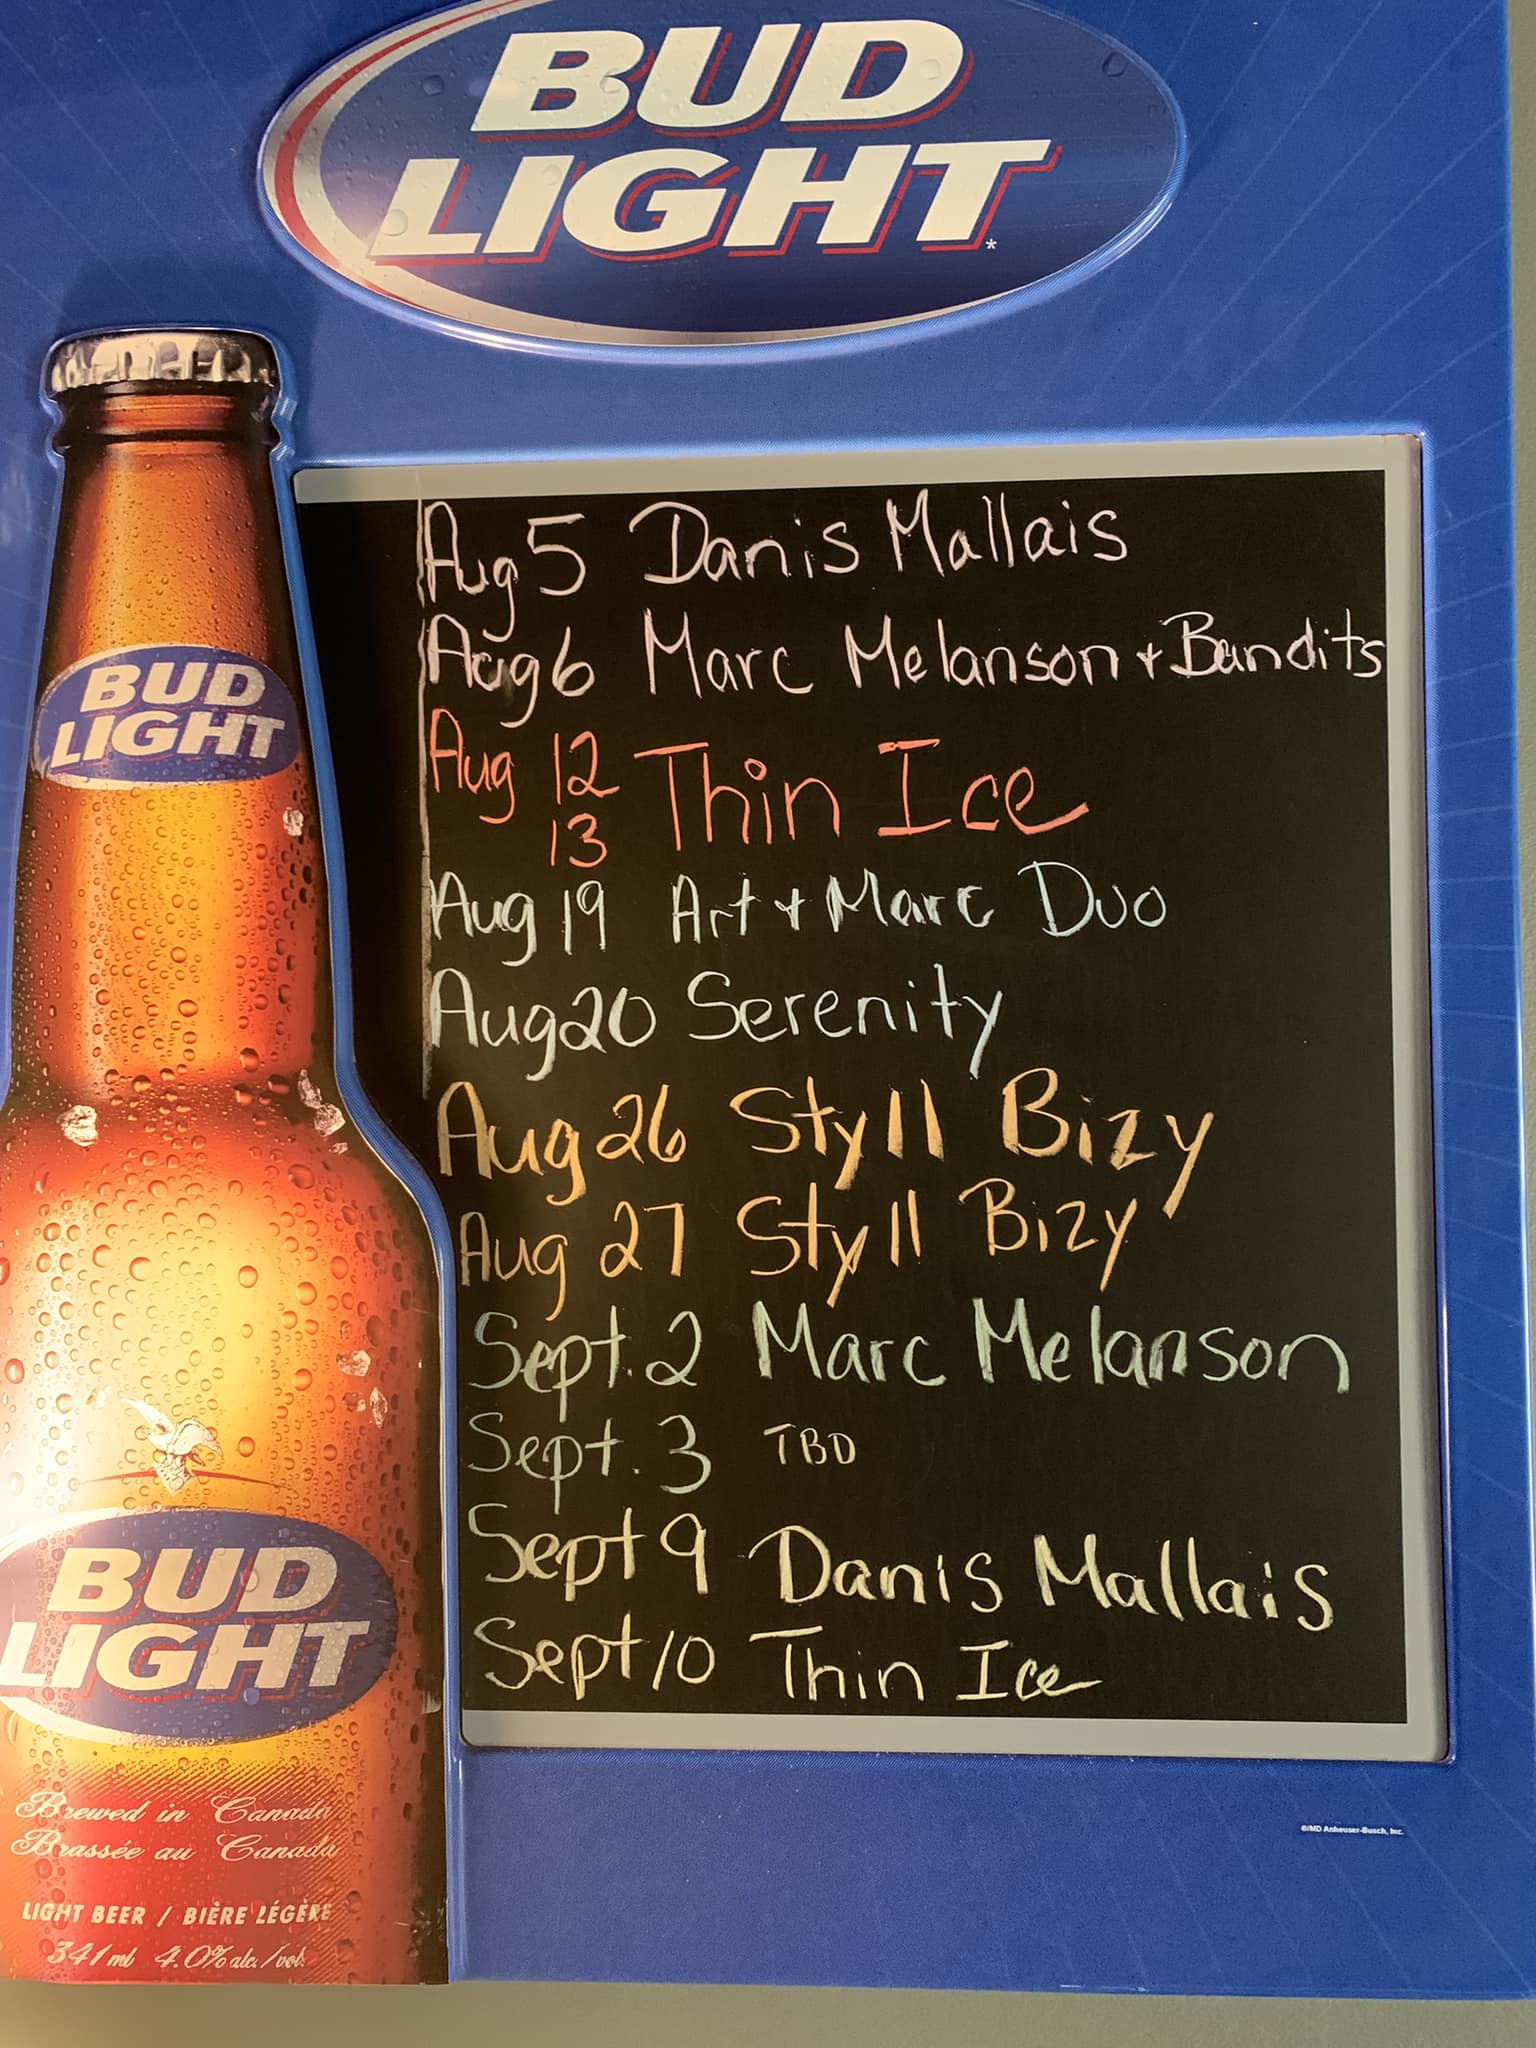 BUD
LIGHT
Aug 5 Danis Mallais
Aug 6 Marc Melanson + Bandits
Aug 12 Thin Ice
13
Aug 19 Art + Marc Duo
Aug 20 Serenity
Aug 26 Styll Bizy
Aug 27 Styll Bizy
Sept. 2 Marc Melanson
Sept. 3 TBD
Sept 9 Danis Mallais
Sept 10 Thin Ice
BUD
LIGHT
BUD
LIGHT
Brewed in Canada
Brassée au Canada
LIGHT BEER / BIÈRE LÉGÈRE
341 ml 4.0% alc./vol.
©/MD Anheuser-Busch, Inc.